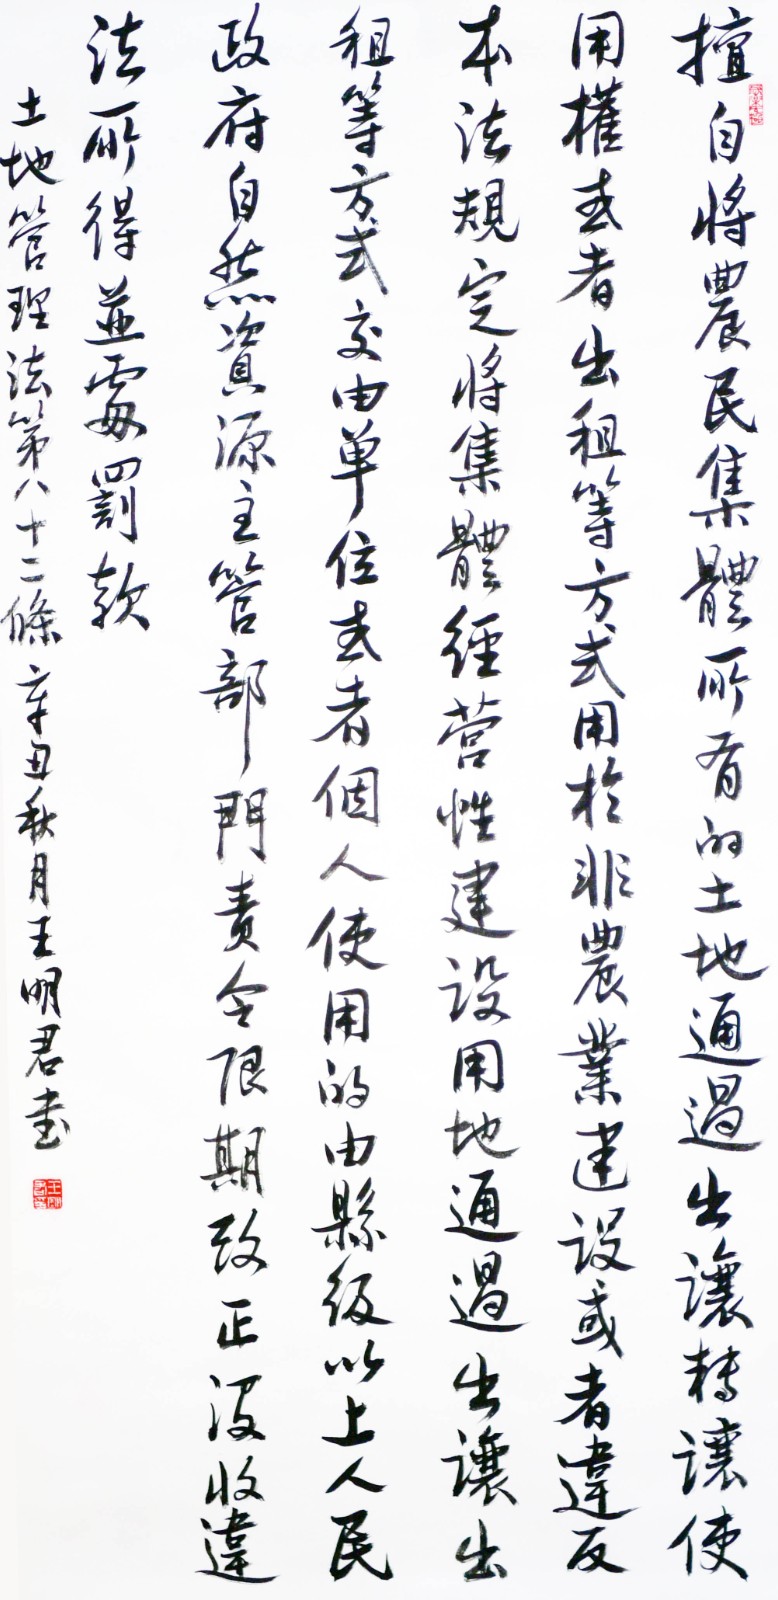 擅自將農民集體所有的土地通過出讓轉讓使
用權或者出租等方式用於非農業建設或者違反
本法規定將集體經营性建設用地通過出讓出
租等方式交由单位或者個人使用的由縣级以上人民
政府自然資源主管部門責令限期改正没收違
法所得並處罰款
土地管理法第八十二條 辛丑秋月王明君書